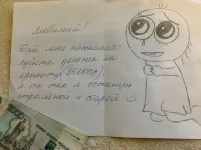 Любимый!
Дай мне пожалуй-
ста денежек на
красоту (35000р),
а то так и останусь
страшной и старой